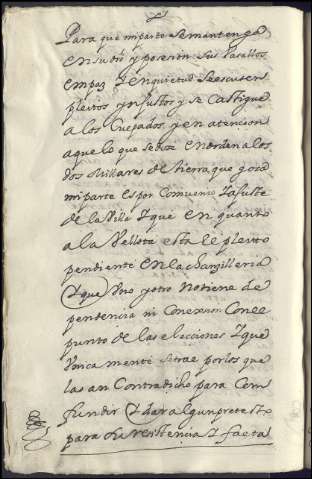 Para que mi parte se mantenga
en su dro y poseçion sus Vasallos
em paz y en quietud Se escusen
pleitos ynjustos y se Castigue
a los Quejados, y en atencion
a que lo que se dize en orden a los
dos Millares de tierra que goza
mi parte es por Comuenio Xa fuste
de la Villa y que en quanto
a la Vellota esta le pleito
pendiente en la chanzilleria
y que Vno y otro no tiene de
pendencia ni Conexion Con ee
punto de las elecciones y que
Vnica mente se trae por los que
las an Contradicho para Com
fundir y dar algun pretesto
para su resistencia y facta